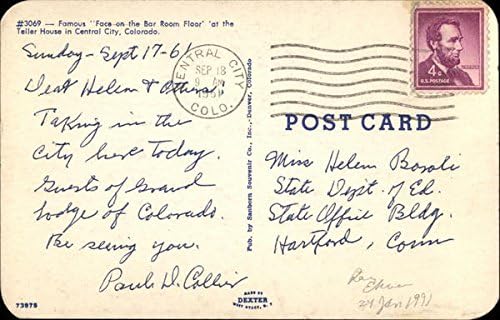 #3069 — Famous "Face-on-the Bar Room Floor" at the
Teller House in Central City, Colorado.
Sunday - Sept 17-61
Dear Helen & Others,
Taking in the
city here today.
Guests of Grand
Lodge of Colorado.
Be seeing you.
Paul D. Collier
73878
Pub. by Sanborn Souvenir Co., Inc., Denver, Colorado
MADE BY
DEXTER
WEST NYACK, N. Y.
CENTRAL CITY
SEP 18
9 AM
1961
COLO.
4¢
U.S. POSTAGE
POST CARD
Miss Helen
State Dept. of Ed.
State Office Bldg.
Hartford, Conn
24 Jan 1991